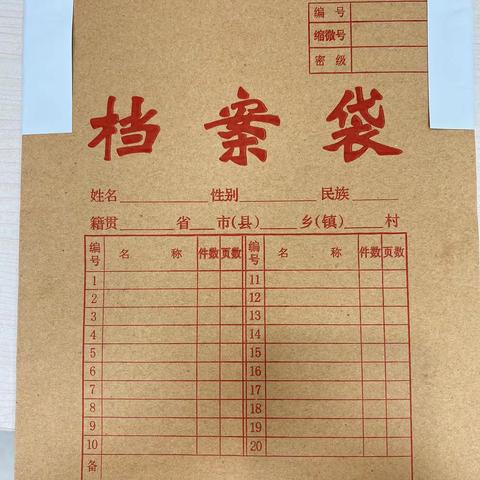 编号
缩微号
密级
档案袋
姓名 性别 民族
籍贯 省 市(县) 乡(镇) 村
编号 名称 件数 页数 编号 名称 件数 页数
1 11
2 12
3 13
4 14
5 15
6 16
7 17
8 18
9 19
10 20
备